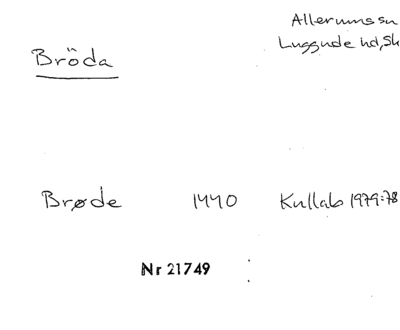 Allerums sn
Luggude hd, Sk
Bröda
Brøde 1440 Kullabs 1979:78
Nr 21749